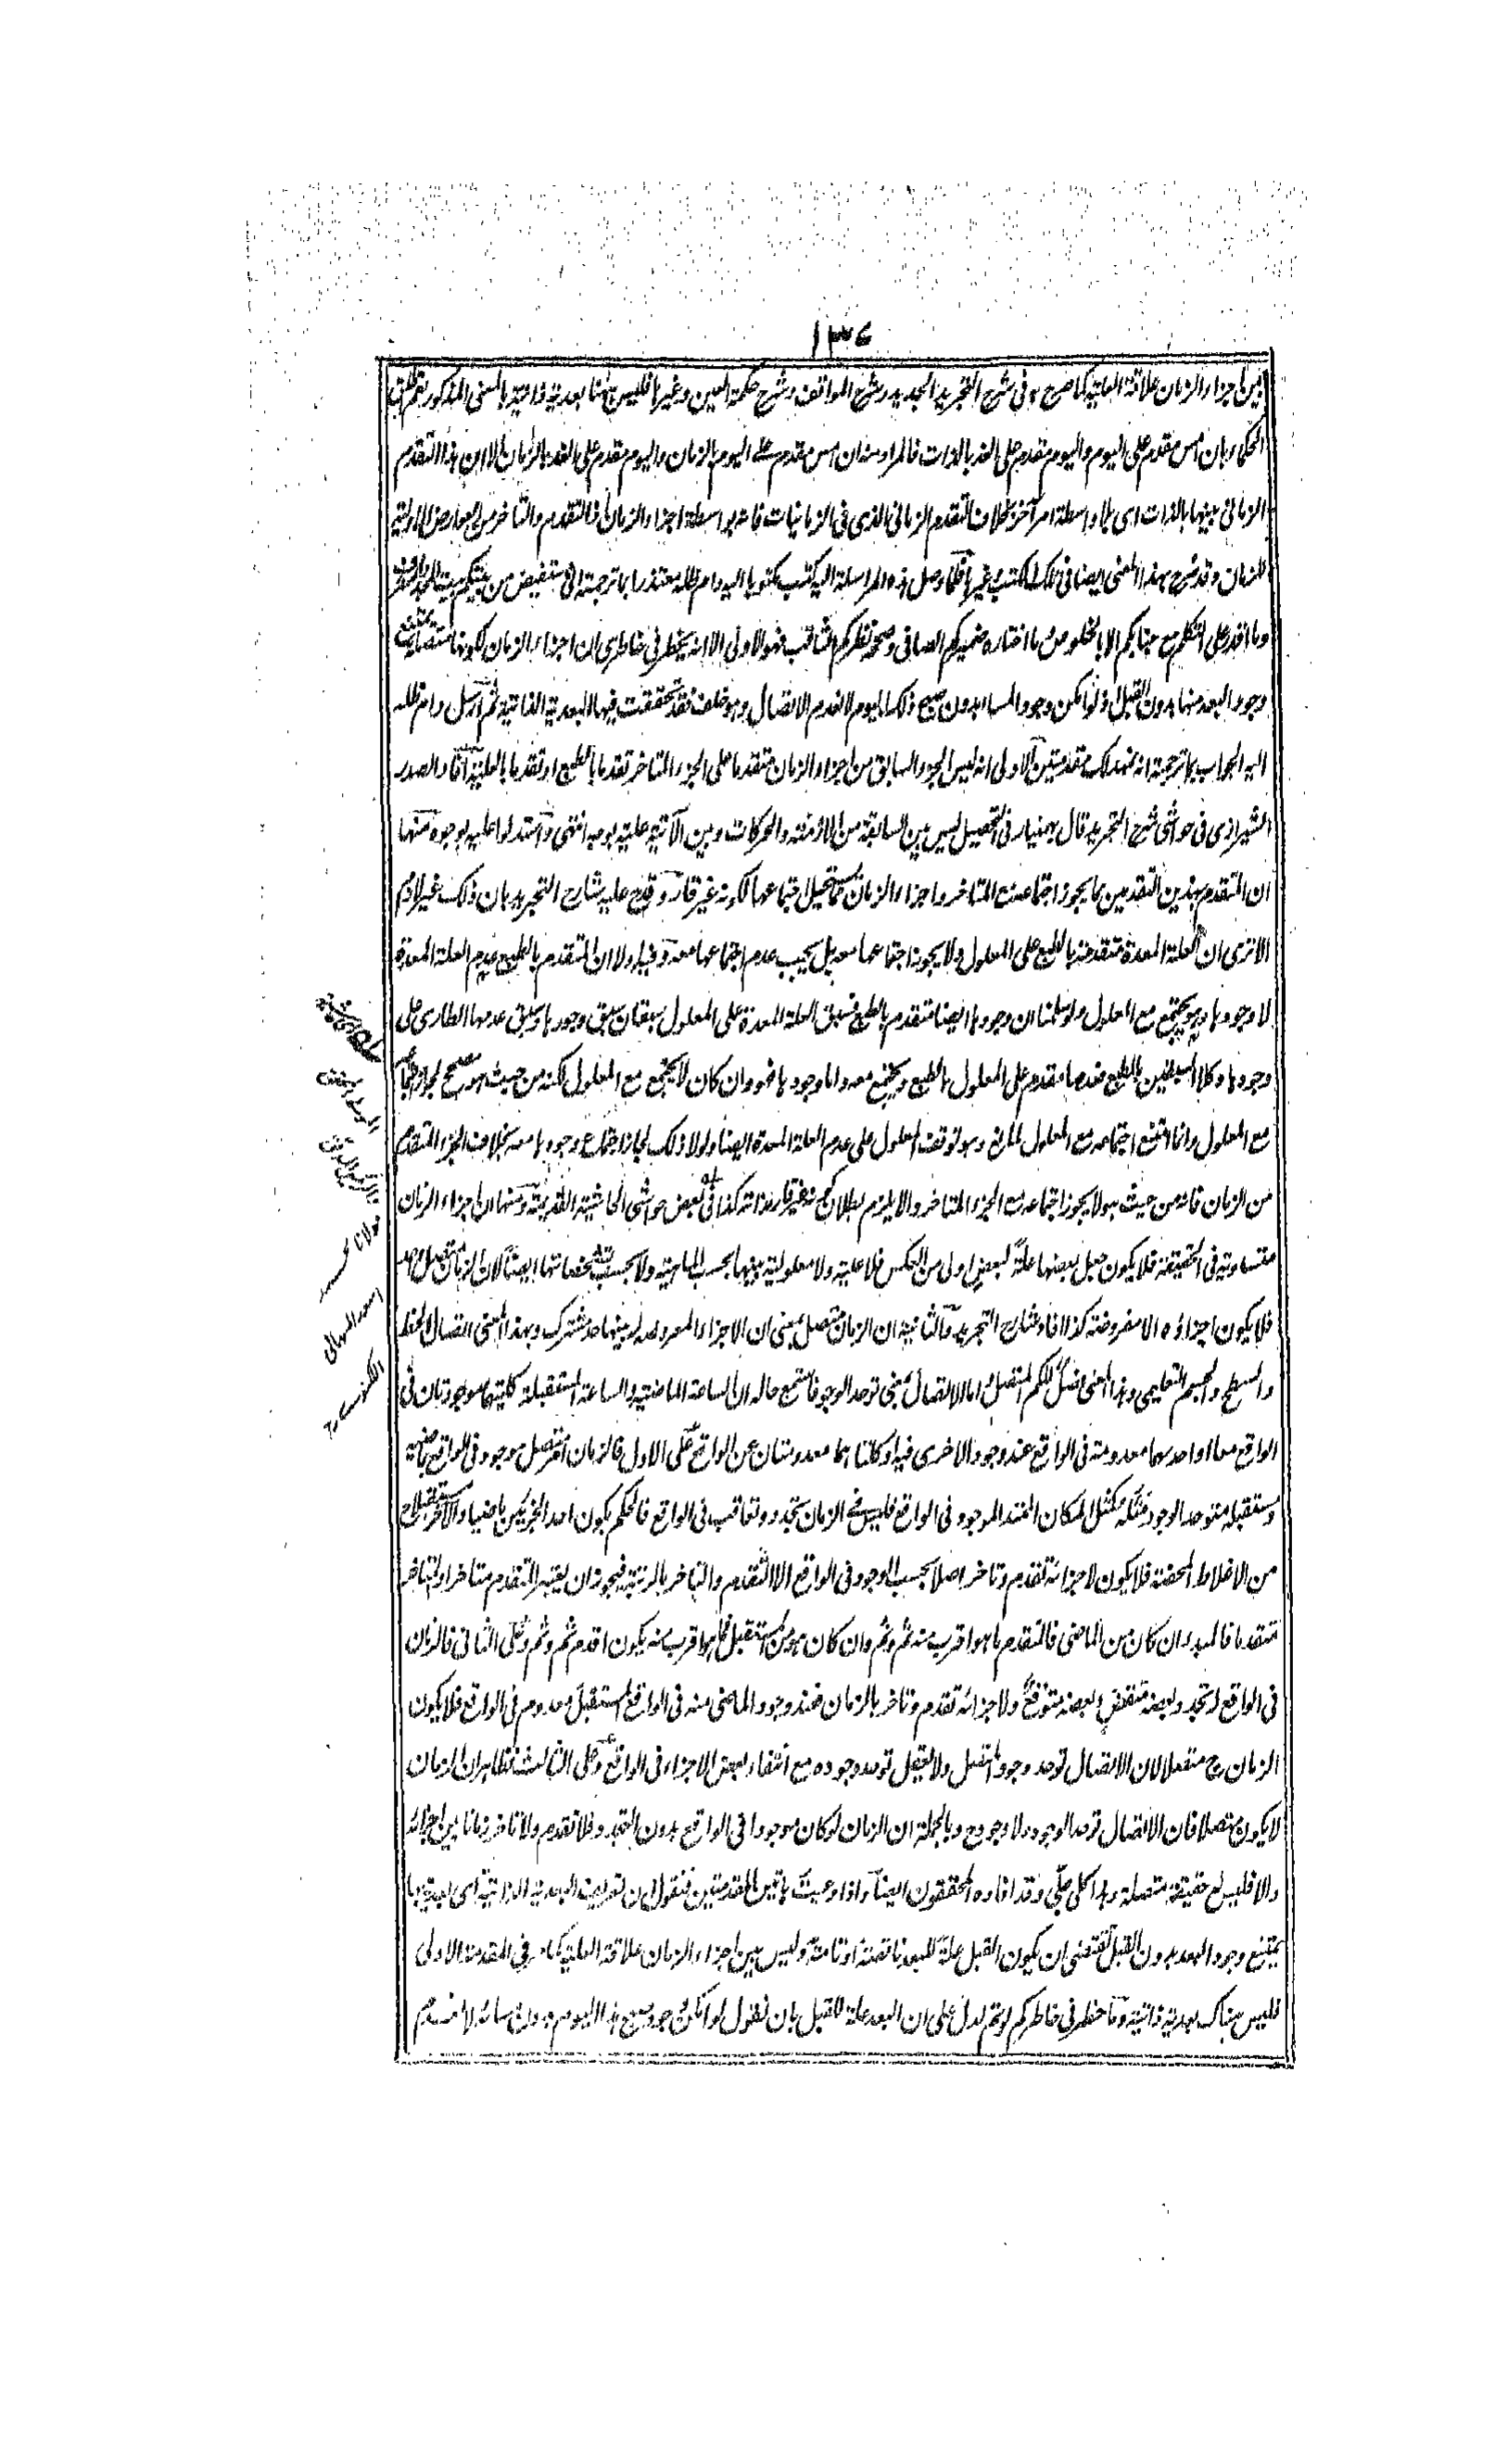 ١٣٤
بين اجزاء الزمان علاقة العلية كما صرح به فى شرح التجريد الجديد وشرح المواقف وشرح حكمة العين وغيرها فليس هنا بعدية ذاتية بالمعنى المذكور نعم
الحكماء بان امس مقدم على اليوم واليوم مقدم على الغد بالذات فالمراد منه ان امس مقدم على اليوم بالزمان واليوم مقدم على الغد بالزمان الا ان هذا التقدم
الزمانى بينها بالذات اى بلا واسطة امر آخر بخلاف التقدم الزمانى الذى فى الزمانيات فانه بواسطة اجزاء الزمان فالتقدم والتاخر من العوارض الاولية
للزمان وقد شرح بهذا المعنى ايضا فى تلك الكتب وغيرها فلما وصل هذه المراسلة اليه كتب مكتوبا اليه دام ظله معتذرا بما ترجمته انى مستفيض من
وما اقدر على التكلم مع جنابكم الا بالخلوص ما اختاره ضميركم الصافى وصححه نظركم الثاقب فهو الاولى الا انه يخطر فى خاطرى ان اجزاء الزمان لكونها متصلة يمتنع
وجود البعد منها بدون القبل اذ لو امكن وجود المساء بدون صبح ذلك اليوم لانعدم الاتصال وهو خلف فقد تحققت فيها البعدية الذاتية ثم ارسل دام ظله
اليه الجواب بما ترجمته انه نمهد لك مقدمتين الاولى انه ليس الجزء السابق من اجزاء الزمان متقدما على الجزء المتاخر تقدما بالطبع او تقدما بالعلية افاد الصدر
الشيرازى فى حواشى شرح التجريد قال بهمنيار فى التحصيل ليس بين السابقة من الازمنة والحركات وبين الآتية علية بوجه انتهى واستدلوا عليه بوجوه منها
ان المتقدم بهذين التقدمين مما يجوز اجتماعه مع المتاخر واجزاء الزمان مما يستحيل اجتماعها لكونه غير قار وقدح عليه شارح التجريد بان ذلك غير لازم
الا ترى ان العلة المعدة متقدمة بالطبع على المعلول ولا يجوز اجتماعها معه بل يجب عدم اجتماعها معه وفيه اولا ان المتقدم بالطبع عدم العلة المعدة
لا وجودها وهو يجتمع مع المعلول ولو سلمنا ان وجودها ايضا متقدم بالطبع فسبق العلة المعدة على المعلول سبقان سبق وجودها وسبق عدمها الطارى على
وجودها وكلا السبقين بالطبع فعدمها مقدم على المعلول بالطبع ويجتمع معه واما وجودها فهو وان كان لا يجتمع مع المعلول لكنه من حيث هو مصحح لجواز اجتماعه
مع المعلول وانما امتنع اجتماعه مع المعلول لمانع وهو توقف المعلول على عدم العلة المعدة ايضا ولولا ذلك لجاز اجتماع وجودها معه بخلاف الجزء المتقدم
من الزمان فانه من حيث هو لا يجوز اجتماعه مع الجزء المتاخر والا يلزم بطلان كونه غير قار لذاته كذا فى بعض حواشى الحاشية القديمة ومنها ان اجزاء الزمان
متساوية فى الحقيقة فلا يكون جعل بعضها علة لبعض اولى من العكس فلا علية ولا معلولية بينها بحسب الماهية ولا بحسب تشخصاتها ايضا لان الزمان متصل واحد
فلا يكون اجزاؤه الا مفروضة كذا افاد شارح التجريد والثانية ان الزمان متصل بمعنى ان الاجزاء المفروضة له بينها حد مشترك وبهذا المعنى اتصال الخط
والسطح والجسم التعليمى وهذا المعنى فصل للكم المتصل اما الاتصال بمعنى توحد الوجود فاستمع حاله ان الساعة الماضية والساعة المستقبلة كلتيهما موجودتان فى
الواقع معا او احدهما معدومة فى الواقع عند وجود الاخرى فيه او كلتاهما معدومتان عن الواقع على الاول فالزمان امر متصل موجود فى الواقع ماضيه
ومستقبله متوحد الوجود مثله كمثل المكان الممتد الموجود فى الواقع فليس فى الزمان تجدد وتعاقب فى الواقع فالحكم بكون احد الجزئين ماضيا والآخر مستقبلا
من الاغلاط المحضة فلا يكون لاجزائه تقدم وتاخر اصلا بحسب الوجود فى الواقع الا التقدم والتاخر بالرتبة فيجوز ان يعتبر المتقدم متاخرا والمتاخر
متقدما فالمبدء ان كان من الماضى فالمتقدم ما هو اقرب منه ثم وثم وان كان هو من المستقبل فما هو اقرب منه يكون اقدم ثم وثم وعلى الثانى فالزمان
فى الواقع له تجدد وبعضه منقض وبعضه متوقع ولاجزائه تقدم وتاخر بالزمان فعند وجود الماضى منه فى الواقع المستقبل معدوم فى الواقع فلا يكون
الزمان ح متصلا لان الاتصال توحد وجود المتصل ولا يعقل توحد وجوده مع انتفاء بعض الاجزاء فى الواقع وعلى الثالث فظاهر ان الزمان
لا يكون متصلا فان الاتصال توحد الوجود ولا وجود ح وبالجملة ان الزمان لو كان موجودا فى الواقع بدون التجدد فلا تقدم ولا تاخر زمانا بين اجزائه
والا فليس له حقيقة متصلة وهذا كله جلى وقد افاده المحققون ايضا واذا وعيت هاتين المقدمتين فنقول ان تعريف البعدية الذاتية اى بعدية بها
يمتنع وجود البعد بدون القبل يقتضى ان يكون القبل علة للبعد ناقصة او تامة وليس بين اجزاء الزمان علاقة العلية كما مر فى المقدمة الاولى
فليس هناك بعدية ذاتية وما خطر فى خاطركم لو تم لدل على ان البعد علة للقبل بان نقول لو امكن وجود صبح هذا اليوم بدون مسائه لانعدم
مولانا محمد
اسعد السهالى